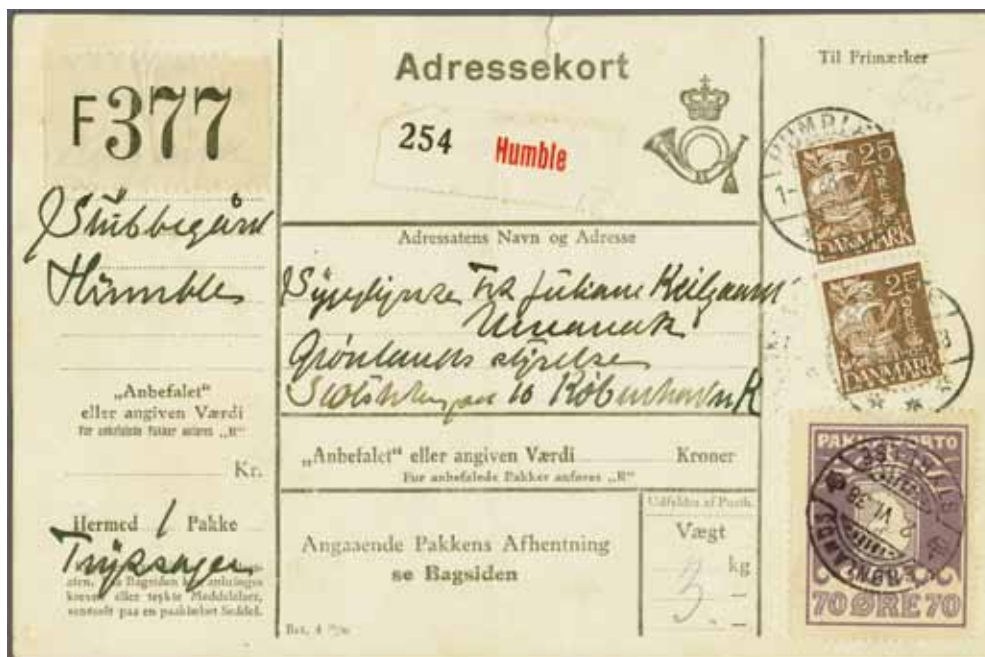 F377
Stubbegård
Humble
„Anbefalet“
eller angiven Værdi
For anbefalede Pakker anføres „R“
Kr.
Hermed 1 Pakke
Tryksager
Bagsiden kan anbringes
eller trykte Meddelelser,
eventuelt paa en paaklæbet Seddel.
Adressekort
254 Humble
Adressatens Navn og Adresse
Sygeplejerske Frk Juliane Keilgaard
Umanak
Grønlands styrelse
10 København K
„Anbefalet“ eller angiven Værdi Kroner
For anbefalede Pakker anføres „R“
Angaaende Pakkens Afhentning
se Bagsiden
Udfyldes af Posth.
Vægt
3 kg
Til Frimærker
HUMBLE
25
ØRE
DANMARK
25
ØRE
DANMARK
PAKKE-PORTO
GRØNLANDS STYRELSE
2 VI. 38
70 ØRE 70